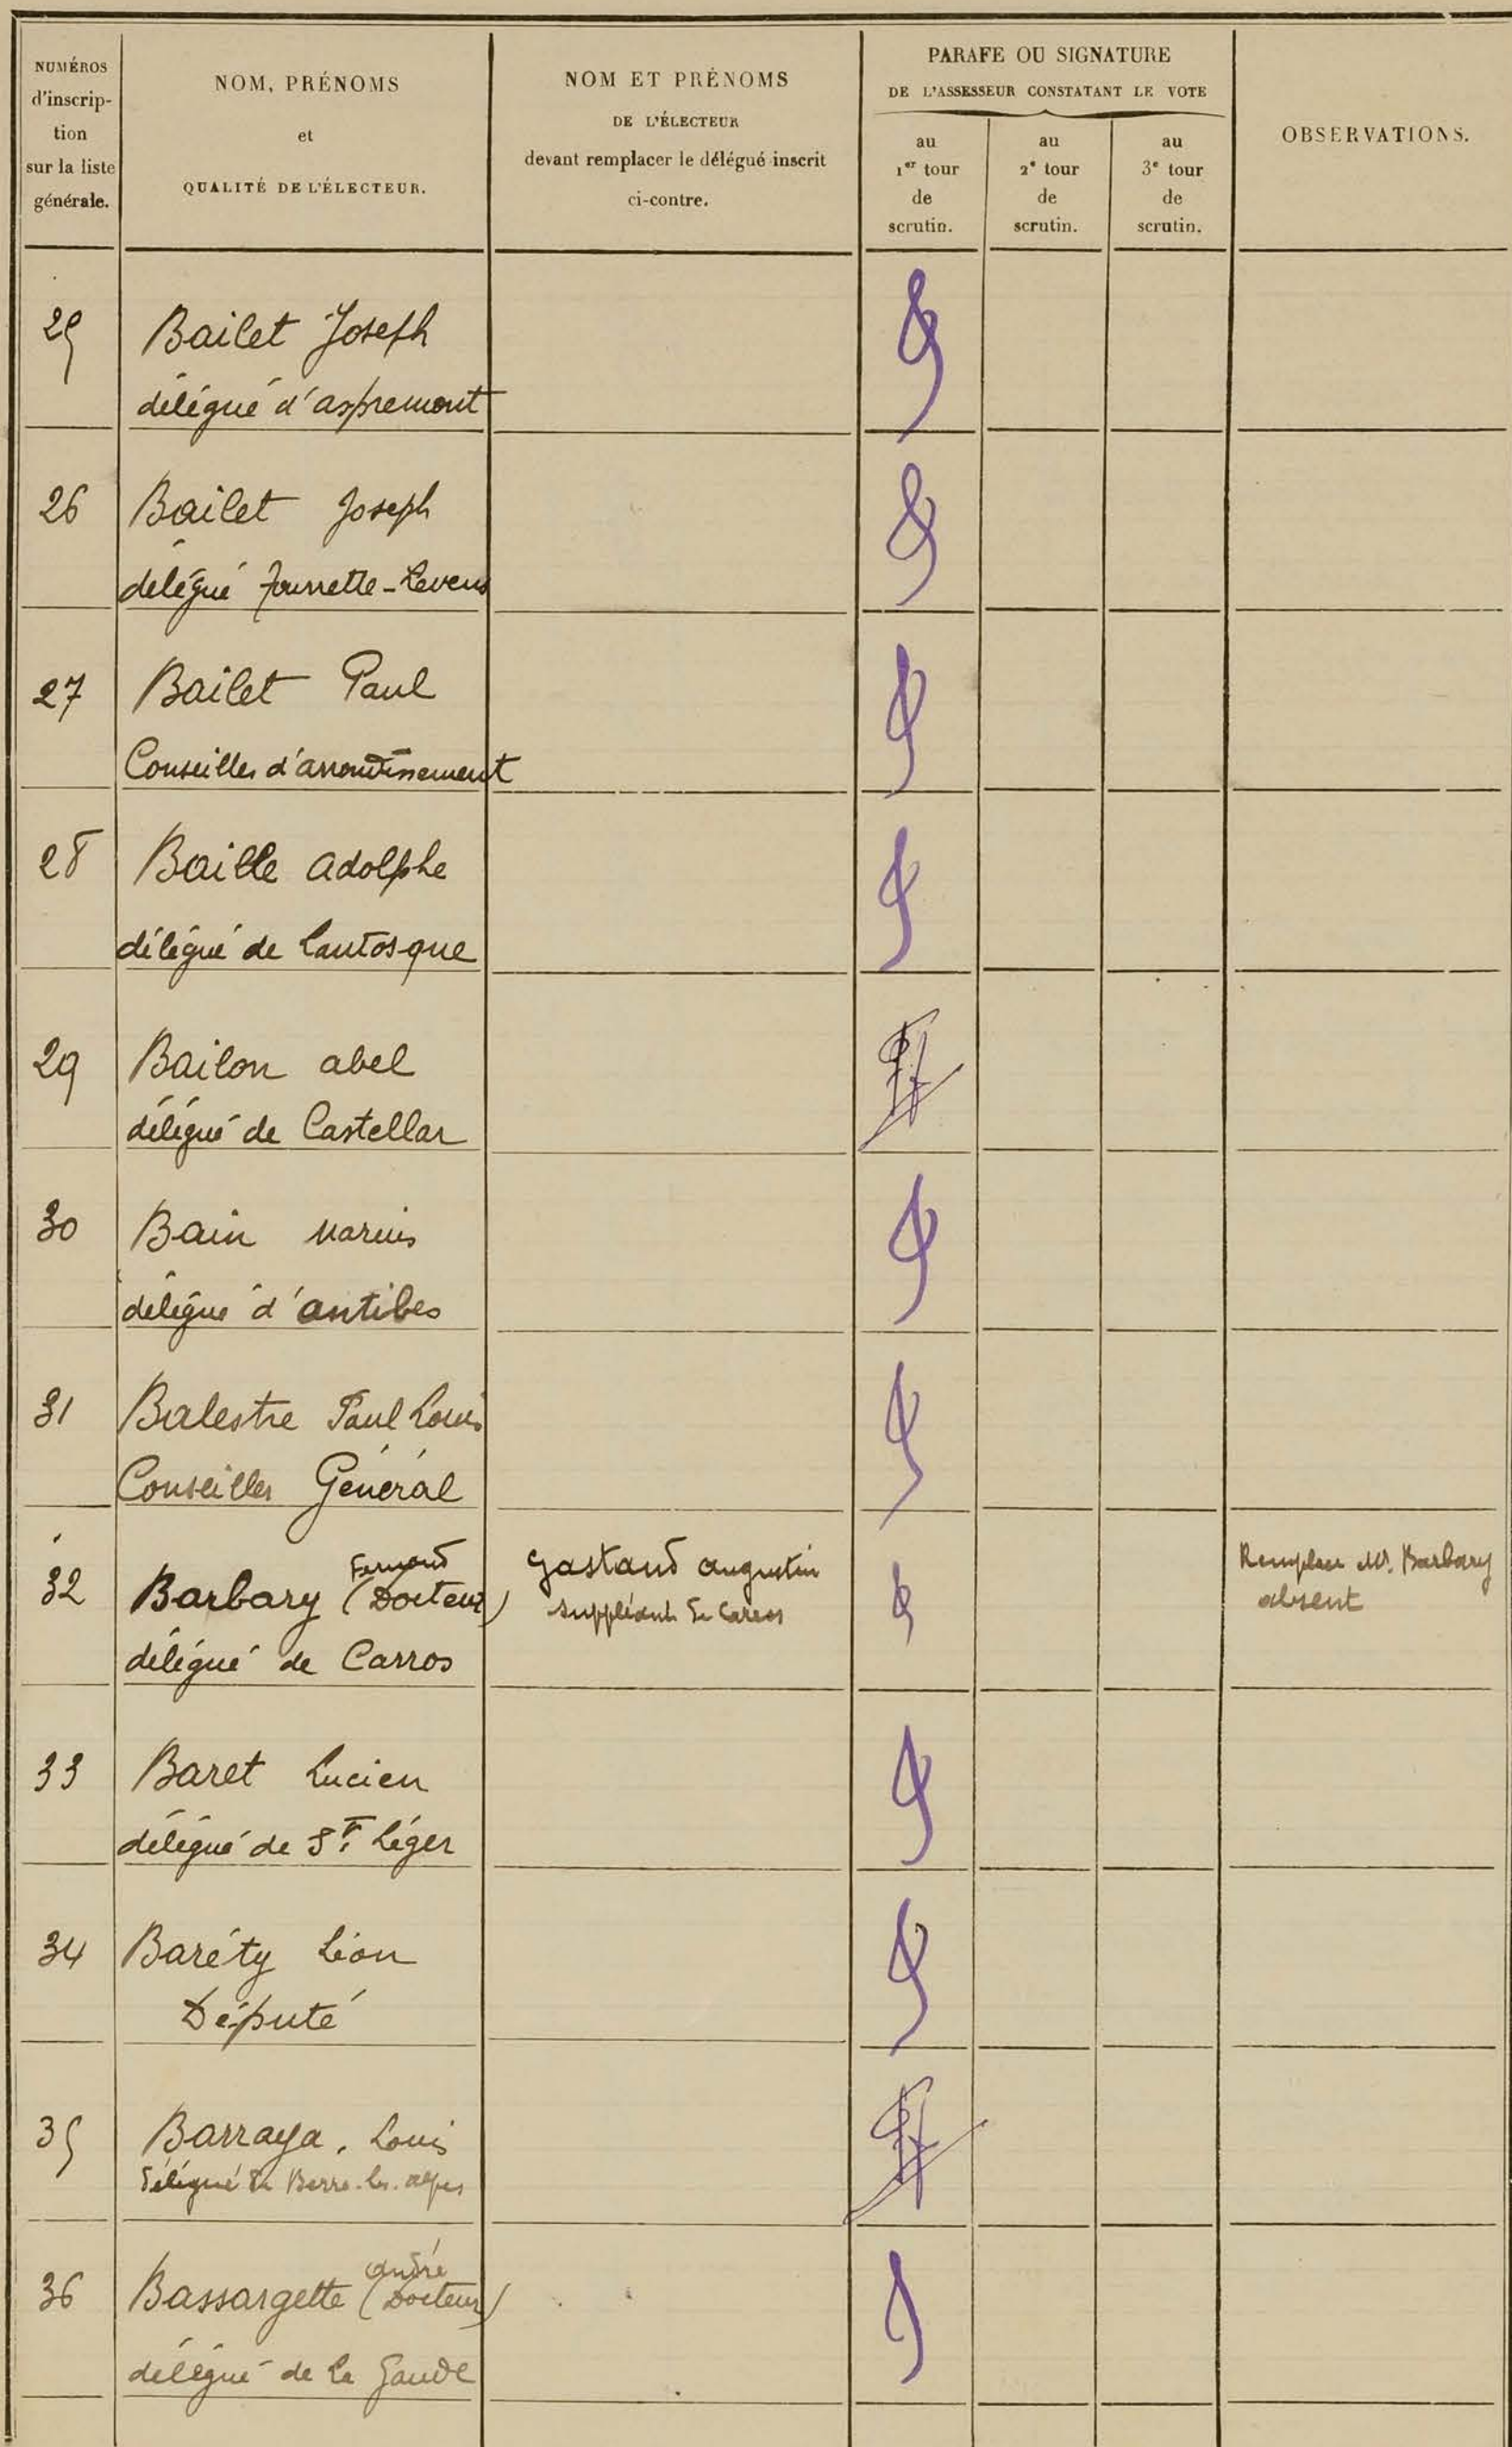 NUMÉROS
d'inscrip-
tion
sur la liste
générale.
NOM, PRÉNOMS
et
QUALITÉ DE L'ÉLECTEUR.
NOM ET PRÉNOMS
DE L'ÉLECTEUR
devant remplacer le délégué inscrit
ci-contre.
PARAFE OU SIGNATURE
DE L'ASSESSEUR CONSTATANT LE VOTE
au
1er tour
de
scrutin.
au
2e tour
de
scrutin.
au
3e tour
de
scrutin.
OBSERVATIONS.
25 Bailet Joseph
délégué d'aspremont
26 Bailet Joseph
délégué Tourrette-Levens
27 Bailet Paul
Conseiller d'arrondissement
28 Baille adolphe
délégué de Lantosque
29 Bailon abel
délégué de Castellar
30 Bain Marius
délégué d'antibes
31 Balestre Paul Louis
Conseiller Général
32 Barbary (Docteur) Fernand
délégué de Carros
Gastaud augustin
suppléant de Carros
Remplace Mr. Barbary
absent
33 Baret Lucien
délégué de St. Léger
34 Baréty Léon
Député
35 Barraya, Louis
délégué de Berre-les-alpes
36 Bassargette (Docteur) andré
délégué de La Gaude